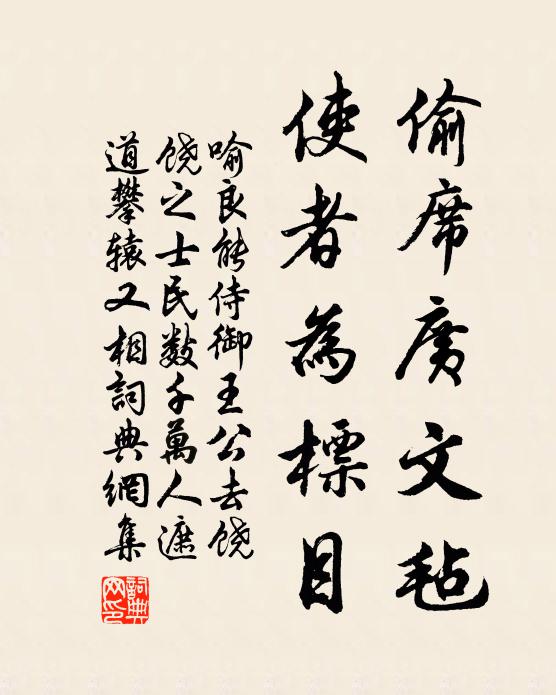 偷席廣文毡
使者為標目
喻良能侍御王公去饶
饶之士民数千萬人遮
道攀辕又相詞典網集
詞典
网印